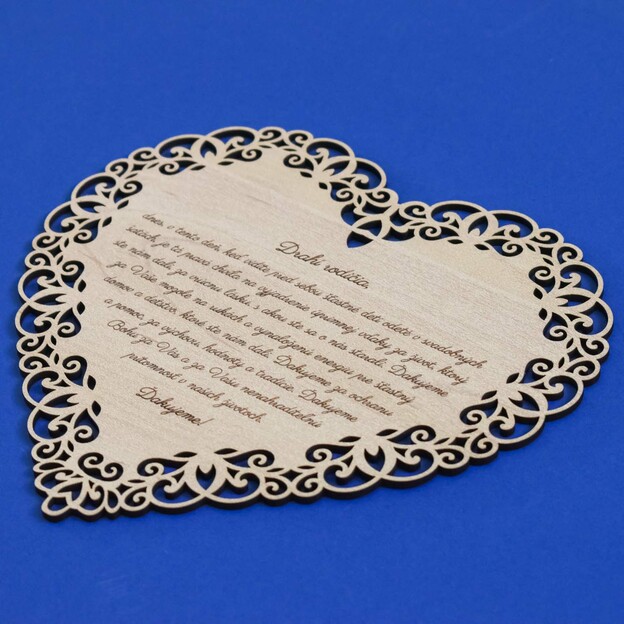 Drahí rodičia,
dnes, v tento deň, keď vidíte pred sebou šťastné deti odeté v svadobných
šatách, je tá pravá chvíľa na vyjadrenie úprimnej vďaky za život, ktorý
ste nám dali, za vrúcnu lásku, s akou ste sa o nás starali. Ďakujeme
za Vaše mozole na rukách a vynaloženú energiu pre šťastný
domov a detstvo, ktoré ste nám dali. Ďakujeme za ochranu
a pomoc, za výchovu, hodnoty a tradície. Ďakujeme
Bohu za Vás a za Vašu nenahraditeľnú
prítomnosť v našich životoch.
Ďakujeme!